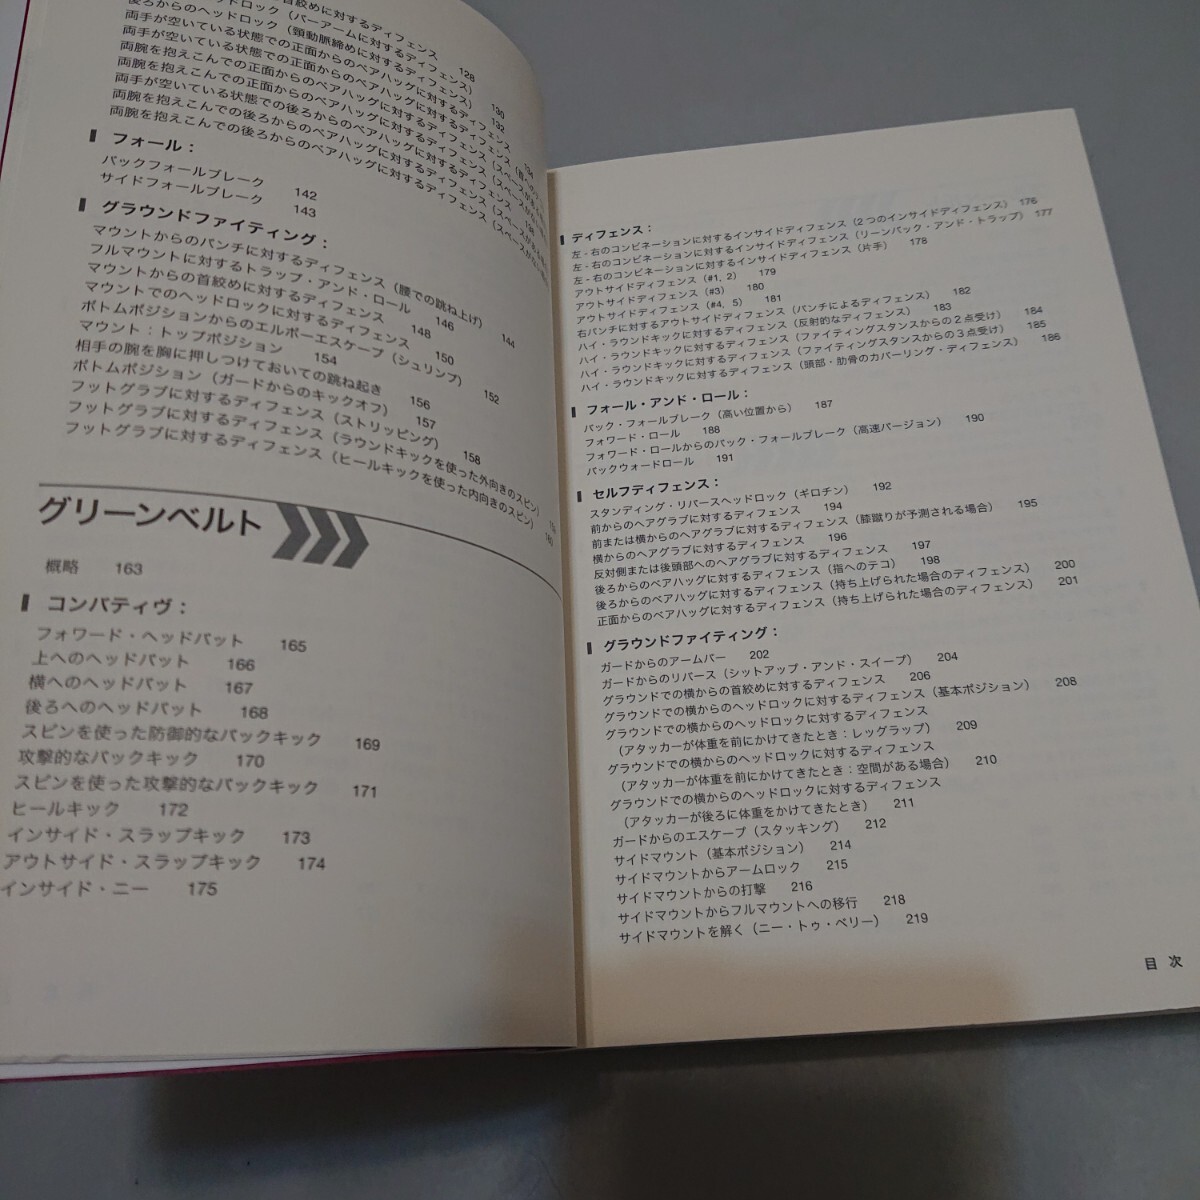 首絞めに対するディフェンス 128
ヘッドロック(バーアームに対するディフェンス) 130
後ろからのヘッドロック(頸動脈締めに対するディフェンス) 132
両手が空いている状態での正面からのベアハッグに対するディフェンス
両手が空いている状態での正面からのベアハッグに対するディフェンス
両腕を抱えこんでの正面からのベアハッグに対するディフェンス
両腕を抱えこんでの正面からのベアハッグに対するディフェンス
両手が空いている状態での後ろからのベアハッグに対するディフェンス
両腕を抱えこんでの後ろからのベアハッグに対するディフェンス
両腕を抱えこんでの後ろからのベアハッグに対するディフェンス
フォール:
バックフォールブレーク 142
サイドフォールブレーク 143
グラウンドファイティング:
マウントからのパンチに対するディフェンス(腰での跳ね上げ) 144
フルマウントに対するトラップ・アンド・ロール 146
マウントからの首絞めに対するディフェンス 148
マウントでのヘッドロックに対するディフェンス 150
ボトムポジションからのエルボーエスケープ(シュリンプ) 152
マウント:トップポジション 154
相手の腕を胸に押しつけておいての跳ね起き 156
ボトムポジション(ガードからのキックオフ) 157
フットグラブに対するディフェンス(ストリッピング) 158
フットグラブに対するディフェンス(ラウンドキックを使った外向きのスピン)
フットグラブに対するディフェンス(ヒールキックを使った内向きのスピン) 160
グリーンベルト
概略 163
コンバティヴ:
フォワード・ヘッドバット 165
上へのヘッドバット 166
横へのヘッドバット 167
後ろへのヘッドバット 168
スピンを使った防御的なバックキック 169
攻撃的なバックキック 170
スピンを使った攻撃的なバックキック 171
ヒールキック 172
インサイド・スラップキック 173
アウトサイド・スラップキック 174
インサイド・ニー 175
ディフェンス:
左-右のコンビネーションに対するインサイドディフェンス(2つのインサイドディフェンス) 176
左-右のコンビネーションに対するインサイドディフェンス(リーンバック・アンド・トラップ) 177
左-右のコンビネーションに対するインサイドディフェンス(片手) 178
アウトサイドディフェンス(#1, 2) 179
アウトサイドディフェンス(#3) 180
アウトサイドディフェンス(#4, 5) 181
右パンチに対するアウトサイドディフェンス(パンチによるディフェンス) 182
ハイ・ラウンドキックに対するディフェンス(反射的なディフェンス) 183
ハイ・ラウンドキックに対するディフェンス(ファイティングスタンスからの2点受け) 184
ハイ・ラウンドキックに対するディフェンス(ファイティングスタンスからの3点受け) 185
ハイ・ラウンドキックに対するディフェンス(頭部・肋骨のカバーリング・ディフェンス) 186
フォール・アンド・ロール:
バック・フォールブレーク(高い位置から) 187
フォワード・ロール 188
フォワード・ロールからのバック・フォールブレーク(高速バージョン) 190
バックウォードロール 191
セルフディフェンス:
スタンディング・リバースヘッドロック(ギロチン) 192
前からのヘアグラブに対するディフェンス 194
前または横からのヘアグラブに対するディフェンス(膝蹴りが予測される場合) 195
横からのヘアグラブに対するディフェンス 196
反対側または後頭部へのヘアグラブに対するディフェンス 197
後ろからのベアハッグに対するディフェンス(指へのテコ) 198
後ろからのベアハッグに対するディフェンス(持ち上げられた場合のディフェンス) 200
正面からのベアハッグに対するディフェンス(持ち上げられた場合のディフェンス) 201
グラウンドファイティング:
ガードからのアームバー 202
ガードからのリバース(シットアップ・アンド・スイープ) 204
グラウンドでの横からの首絞めに対するディフェンス 206
グラウンドでの横からのヘッドロックに対するディフェンス(基本ポジション) 208
グラウンドでの横からのヘッドロックに対するディフェンス
(アタッカーが体重を前にかけてきたとき:レッグラップ) 209
グラウンドでの横からのヘッドロックに対するディフェンス
(アタッカーが体重を前にかけてきたとき:空間がある場合) 210
グラウンドでの横からのヘッドロックに対するディフェンス
(アタッカーが後ろに体重をかけてきたとき) 211
ガードからのエスケープ(スタッキング) 212
サイドマウント(基本ポジション) 214
サイドマウントからアームロック 215
サイドマウントからの打撃 216
サイドマウントからフルマウントへの移行 218
サイドマウントを解く(ニー・トゥ・ベリー) 219
目 次